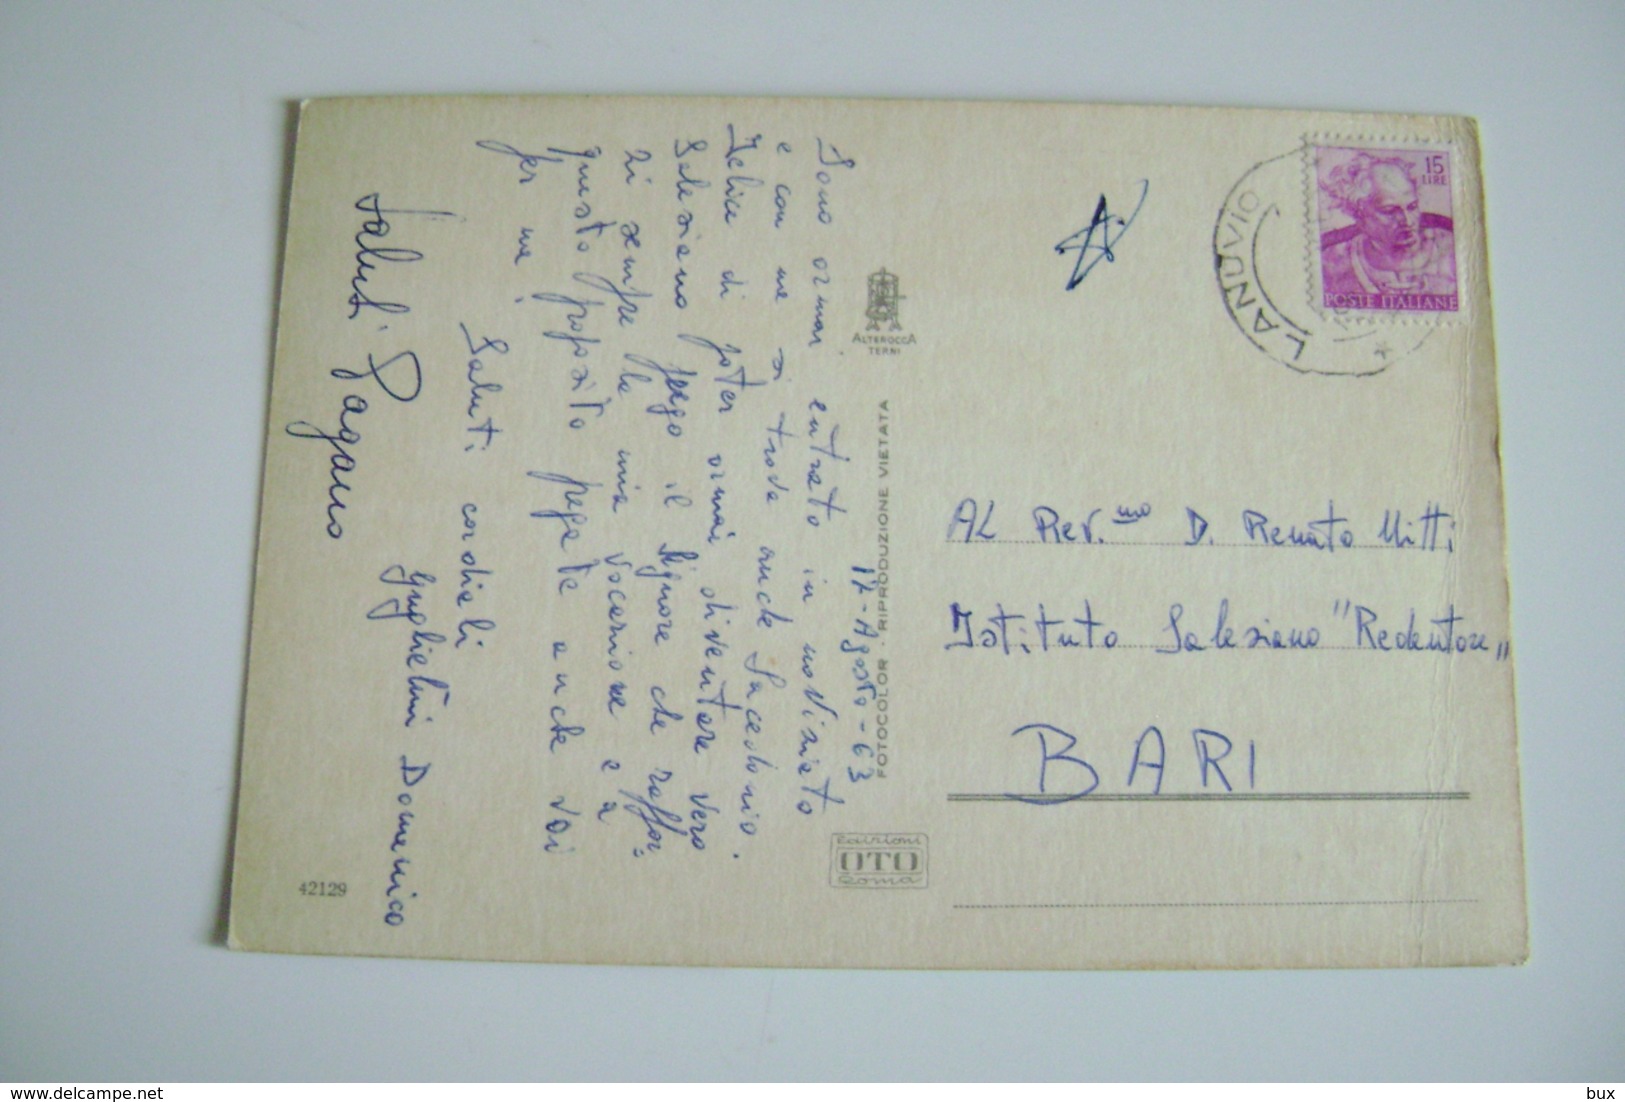 17-Agosto-63
Sono ormai entrato in noviziato
e con me si trova anche Sacedonio.
Felice di poter ormai diventare vero
Salesiano prego il Signore che raffor=
zi sempre la mia vocazione e a
questo proposito pregate anche voi
per me!
Saluti cordiali
Guglielmi Domenico
Saluti Pagano
ALTEROCCA
TERNI
FOTOCOLOR · RIPRODUZIONE VIETATA
Edizioni
OTO
Roma
42129
15
LIRE
POSTE ITALIANE
LANUVIO
AL Rev.mo D. Renato Mitti
Istituto Salesiano "Redentore"
BARI
bux
delcampe.net